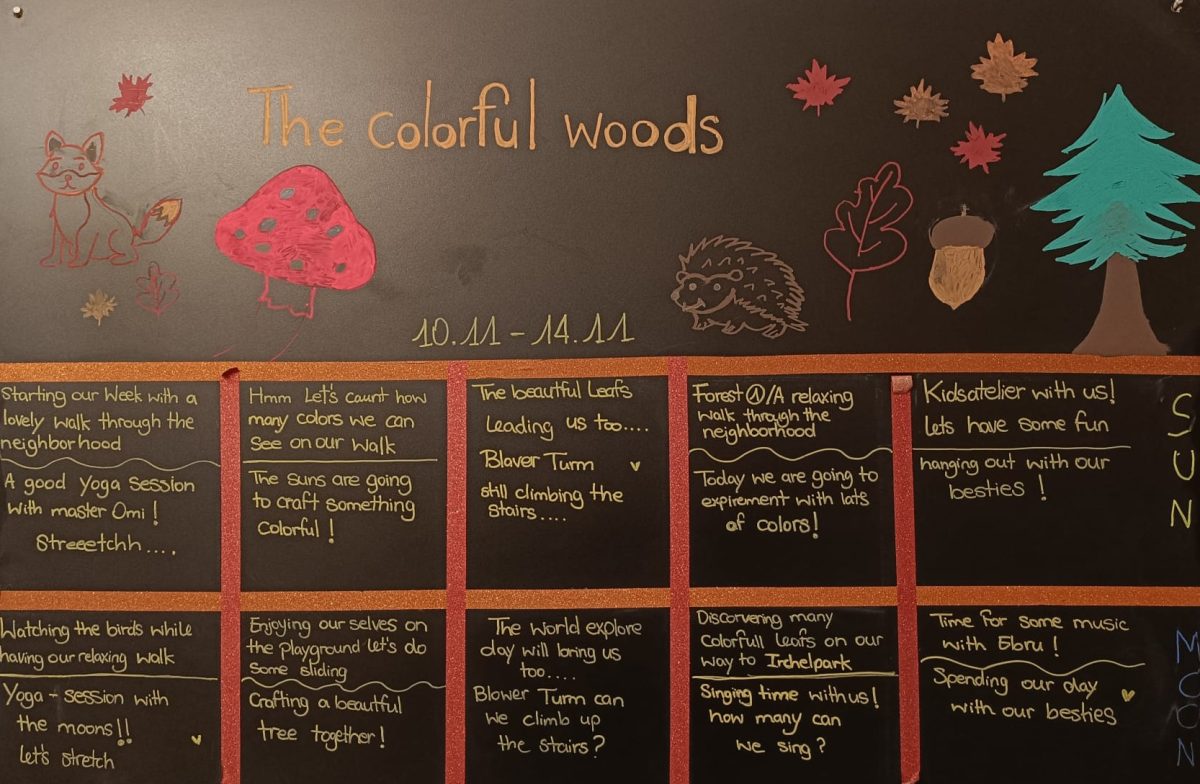 The colorful woods
10.11 - 14.11
Starting our Week with a
lovely walk through the
neighborhood
A good Yoga session
with master Omi!
Streeetchh....
Hmm Let's caunt how
many colors we can
see on our walk
The suns are going
to craft something
colorful!
The beautful Leafs
Leading us too....
Blaver Turm
still climbing the
stairs....
Forest Ⓐ/A relaxing
walk through the
neighborhood
Today we are going to
expirement with lats
of colors!
Kidsatelier with us!
Lets have some fun
hanging out with our
besties!
SUN
Watching the birds while
having our relaxing walk
Yoga - session with
the moons!!
Let's stretch
Enjoying our selves on
the playground let's do
some sliding
Crafting a beautful
tree together!
The world explore
day will bring us
too....
Blower Turm can
we climb up
the stairs?
Discorvering many
Colorfull leafs on our
way to Irchelpark
Singing time with us!
how many can
we sing?
Time for some music
with Ebru!
Spending our day
with our besties
MOON